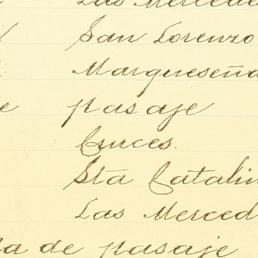 Las Merced
San Lorenzo
Marqueseña
pasaje
Cruces.
Sta Catalin
Las Merced
da de pasaje